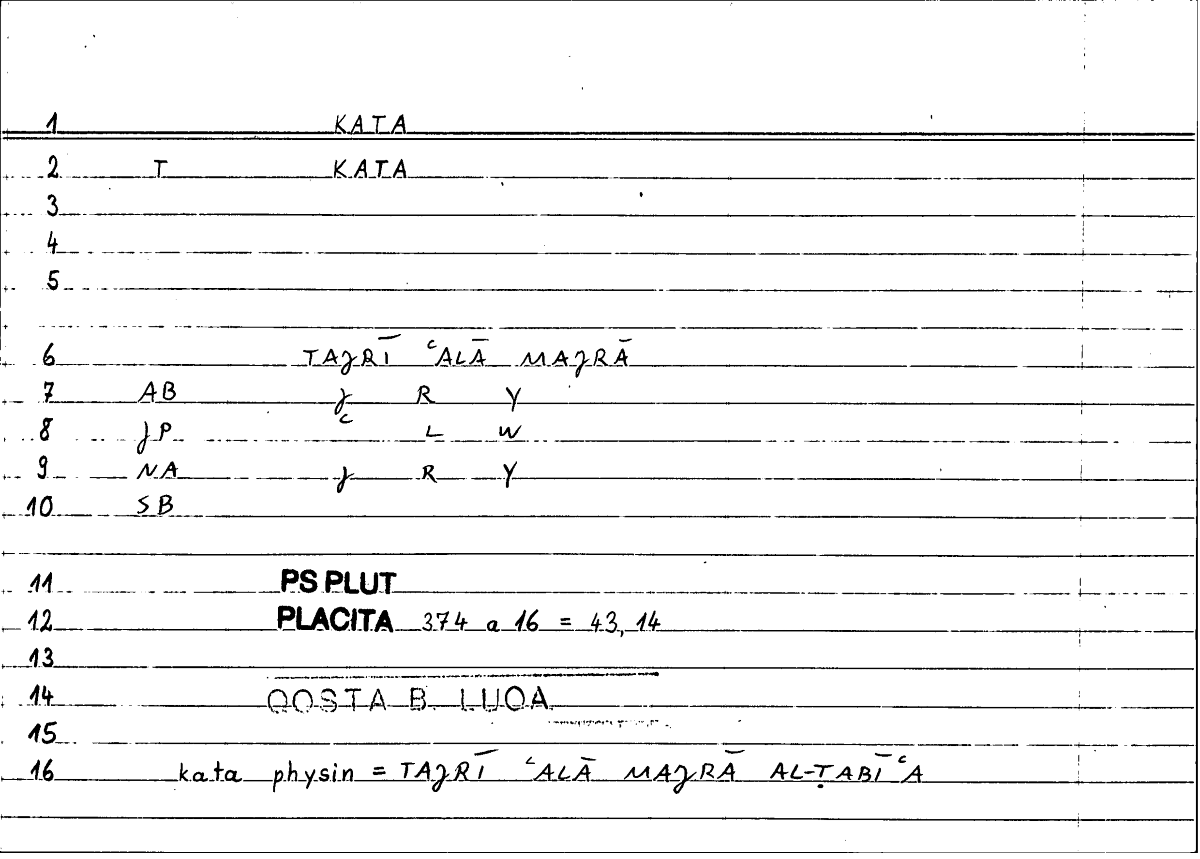 1 KATA
2 T KATA
3
4
5
6 TAJRĪ ʿALĀ MAJRĀ
7 AB J R Y
8 JP ʿ L W
9 NA J R Y
10 SB
11 PS PLUT
12 PLACITA 374 a 16 = 43,14
13
14 QOSTA B. LUQA
15
16 kata physin = TAJRĪ ʿALĀ MAJRĀ AL-ṬABĪʿA